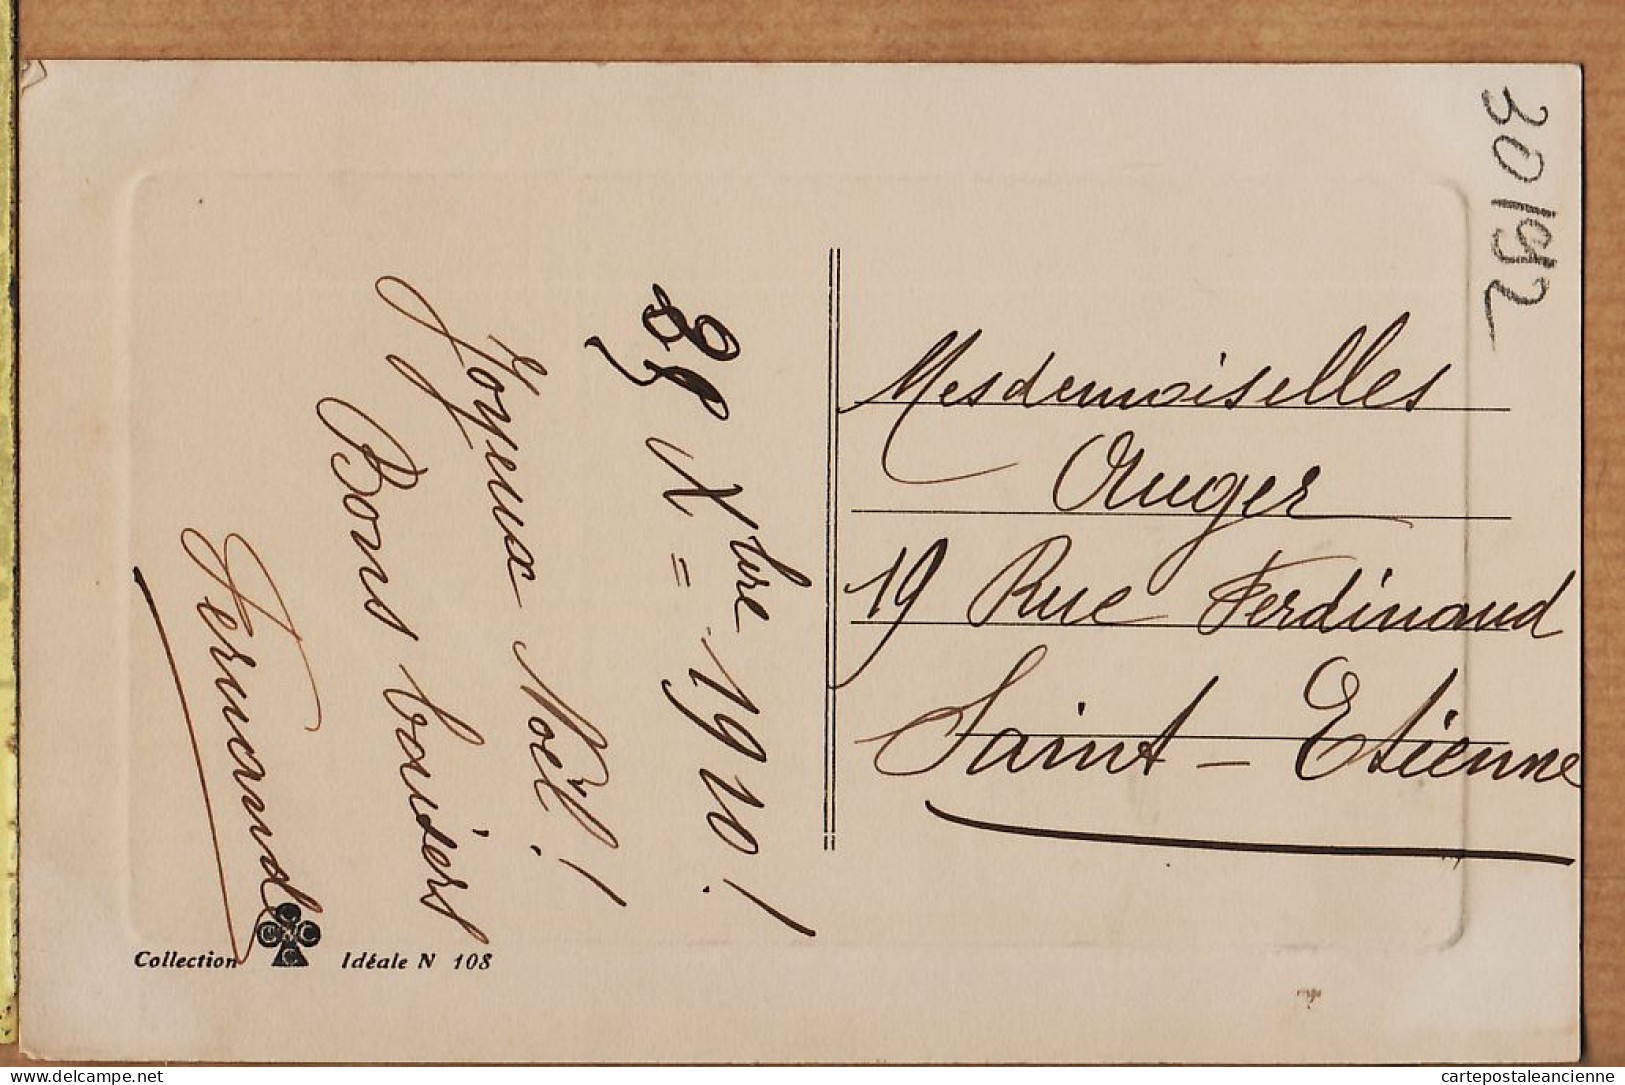 25 Xbre = 1910!
Joyeux Noël!
Bons baisers
Fernand
Mesdemoiselles
Auger
19 Rue Ferdinand
Saint-Etienne
30192
Collection Idéale N 108
cartepostaleancienne